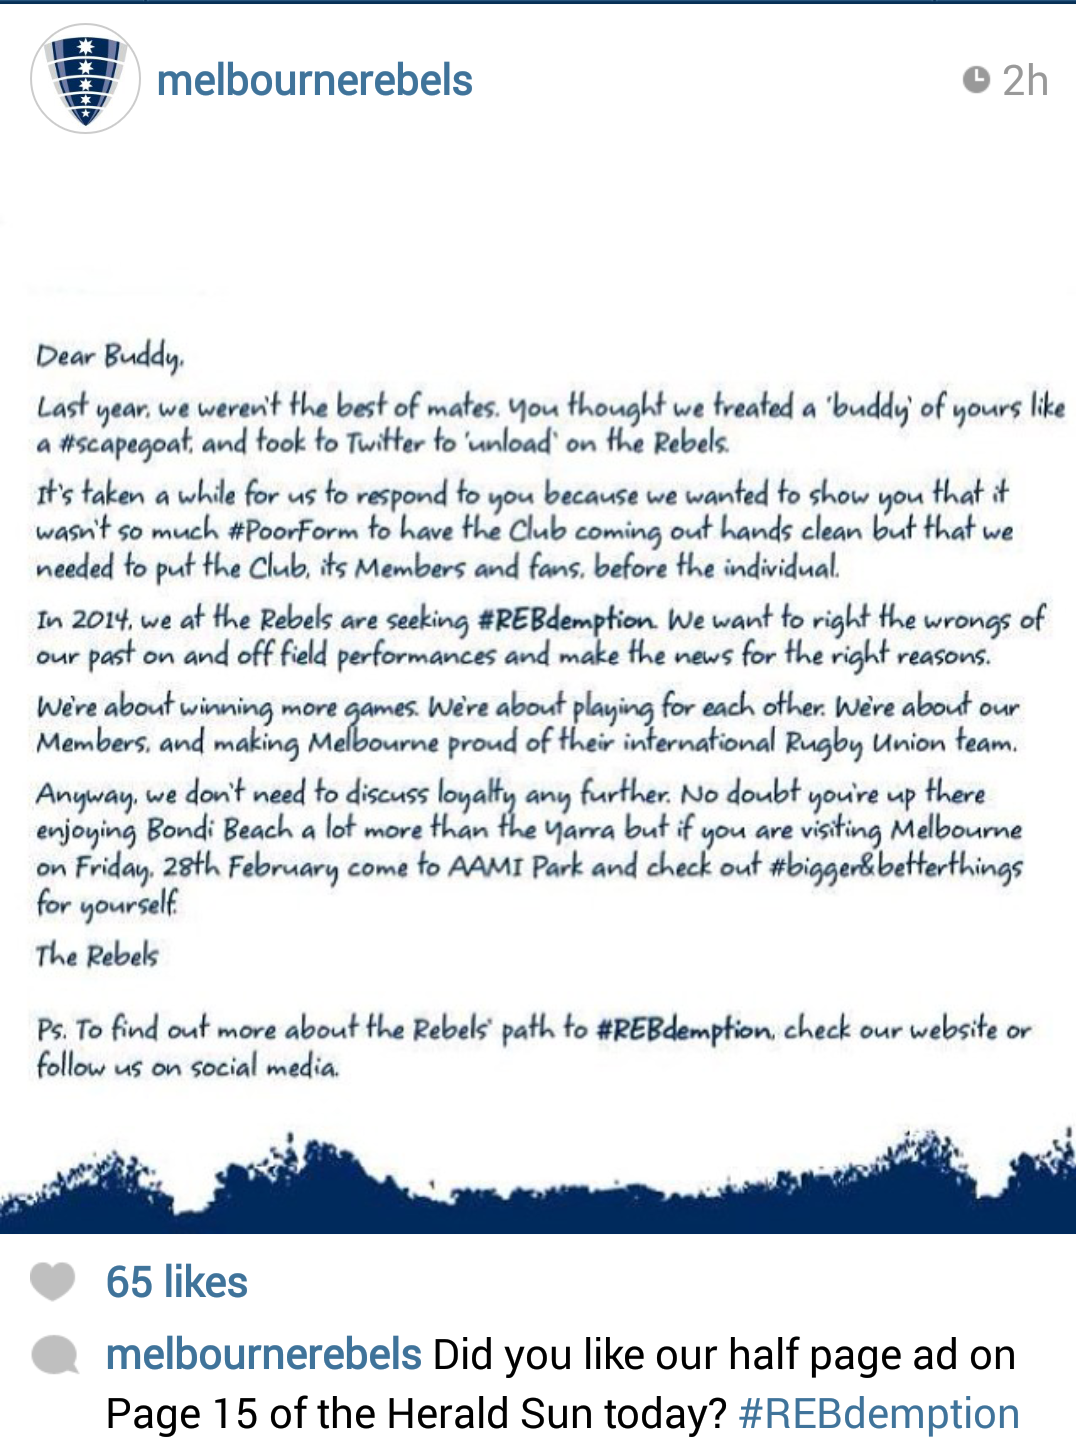 melbournerebels
2h
Dear Buddy,
Last year, we weren't the best of mates. You thought we treated a 'buddy' of yours like
a #scapegoat, and took to Twitter to 'unload' on the Rebels.
It's taken a while for us to respond to you because we wanted to show you that it
wasn't so much #PoorForm to have the Club coming out hands clean but that we
needed to put the Club, its Members and fans, before the individual.
In 2014, we at the Rebels are seeking #REBdemption. We want to right the wrongs of
our past on and off field performances and make the news for the right reasons.
We're about winning more games. We're about playing for each other. We're about our
Members, and making Melbourne proud of their international Rugby Union team.
Anyway, we don't need to discuss loyalty any further. No doubt you're up there
enjoying Bondi Beach a lot more than the Yarra but if you are visiting Melbourne
on Friday, 28th February come to AAMI Park and check out #bigger&betterthings
for yourself.
The Rebels
Ps. To find out more about the Rebels' path to #REBdemption, check our website or
follow us on social media.
65 likes
melbournerebels Did you like our half page ad on
Page 15 of the Herald Sun today? #REBdemption